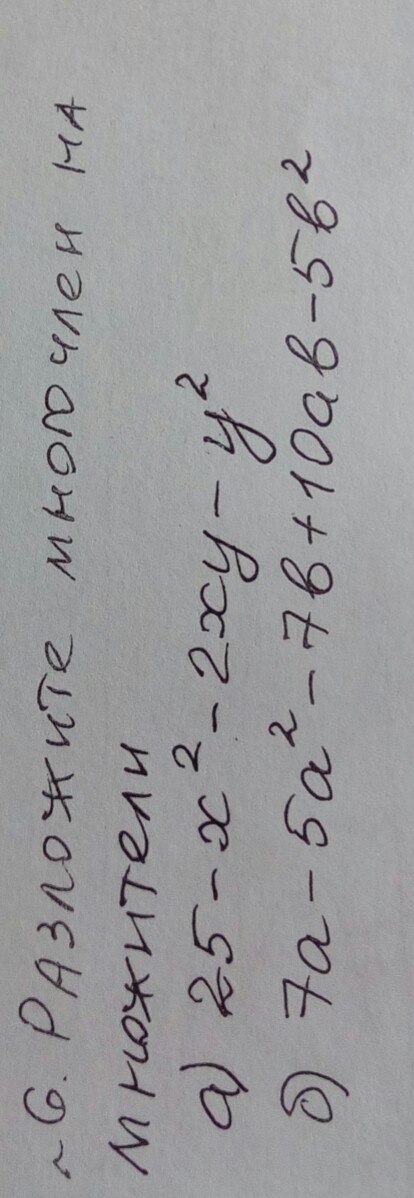 №6. Разложите многочлен на
множители
а) 25 - x² - 2xy - y²
б) 7a - 5a² - 7b + 10ab - 5b²